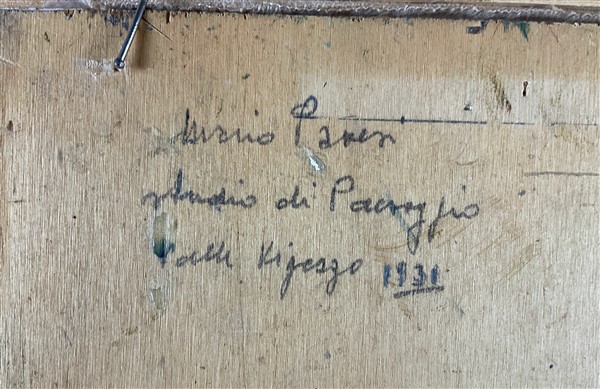 Mario Paresi
studio di Paesaggio
Valle Vigezzo 1931